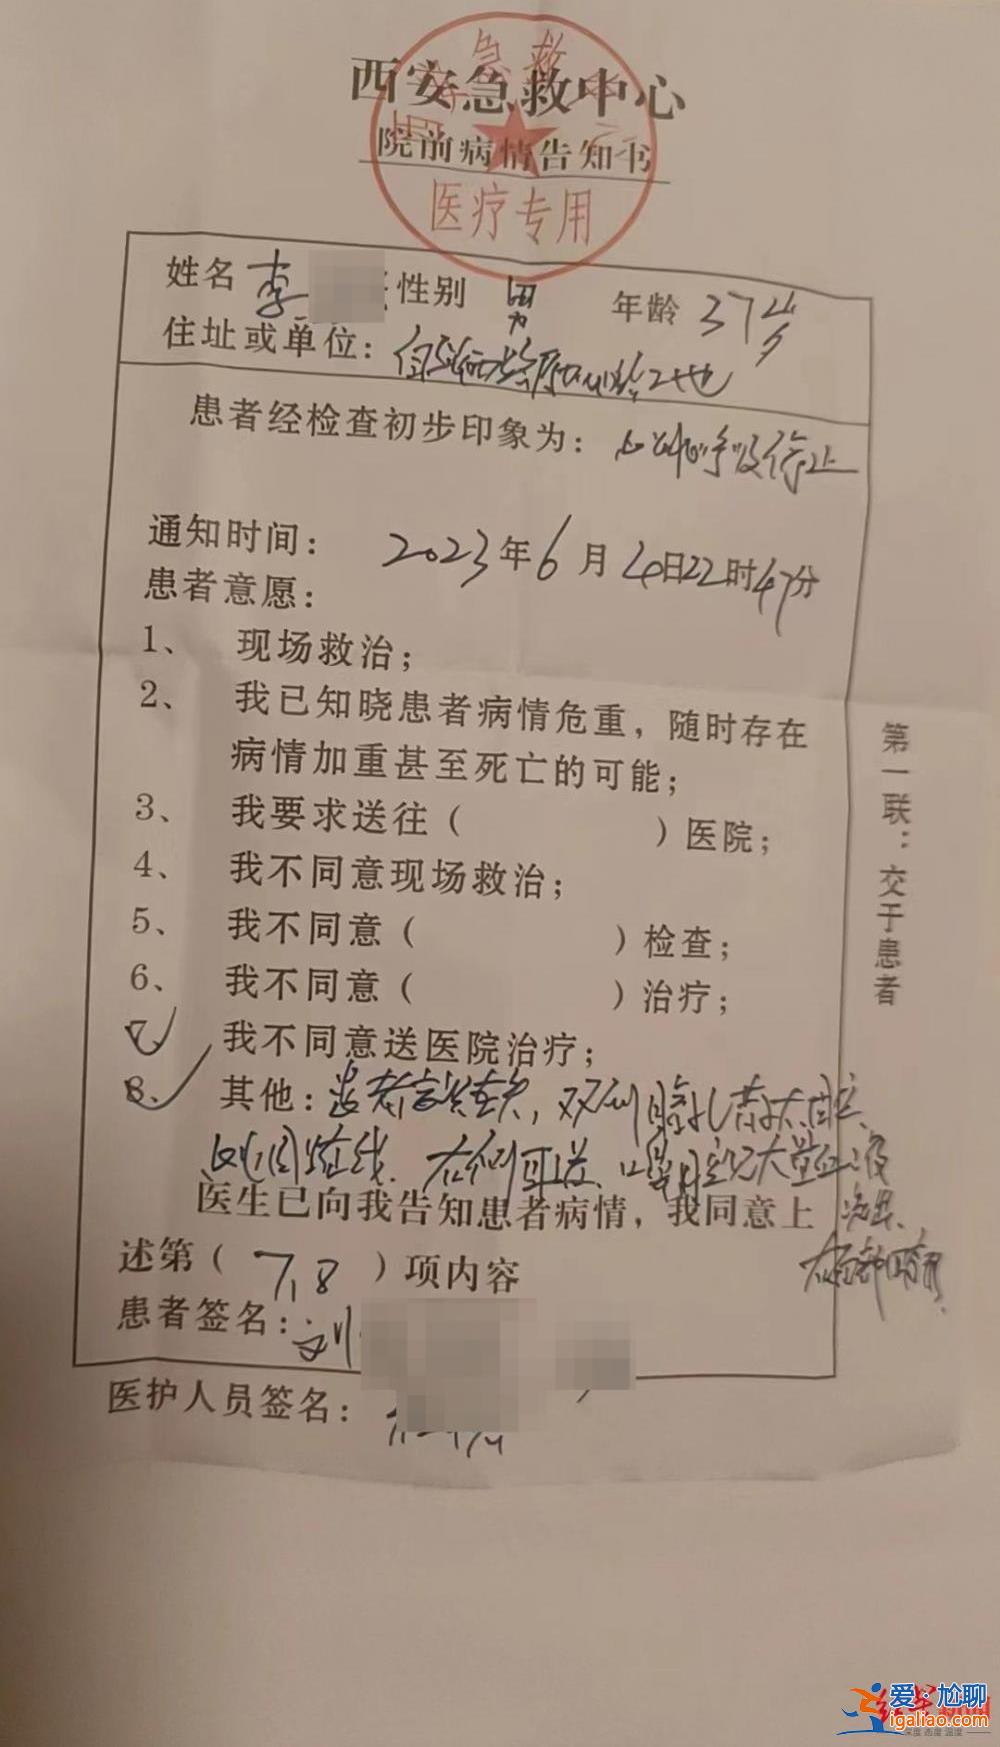 急救
西安急救中心
院前病情告知书
医疗专用
姓名 李 性别 男 年龄 37岁
住址或单位：
患者经检查初步印象为：心跳呼吸停止
通知时间： 2023年6月4日22时47分
患者意愿：
1、 现场救治；
2、 我已知晓患者病情危重，随时存在
病情加重甚至死亡的可能；
3、 我要求送往（ ）医院；
4、 我不同意现场救治；
5、 我不同意（ ）检查；
6、 我不同意（ ）治疗；
7、 我不同意送医院治疗；
8、 其他：患者意识丧失，双侧瞳孔散大固定、
心电图直线、右侧耳道、口鼻腔见大量血液
流出、
医生已向我告知患者病情，我同意上
述第（ 7、8 ）项内容
患者签名：刘
医护人员签名：
第一联：交于患者
爱·尬聊
igaliao.com
深度 态度 温度